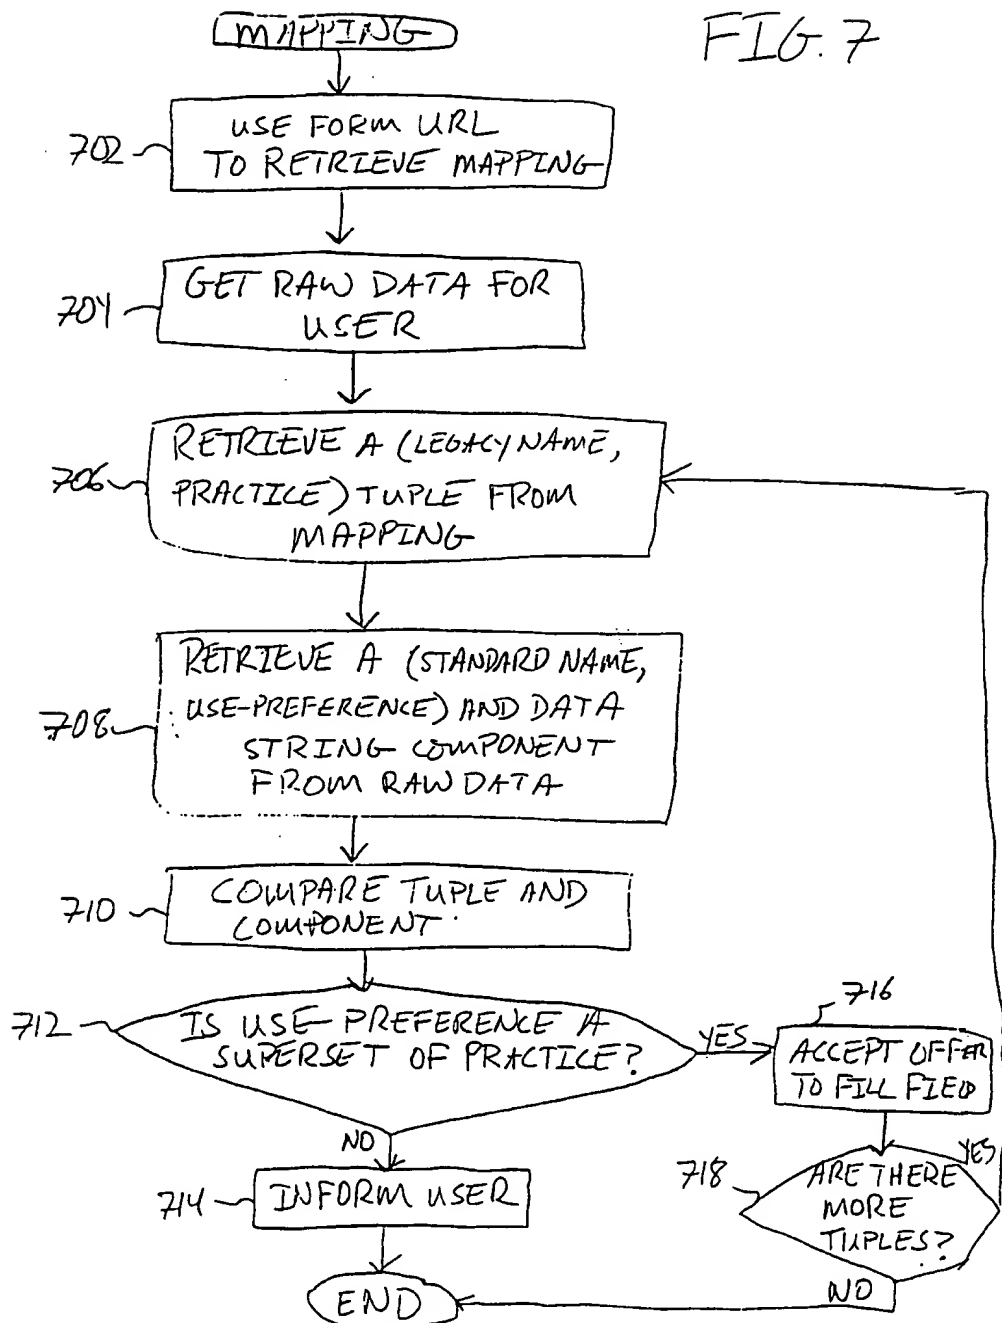 MAPPING
FIG. 7
702
USE FORM URL
TO RETRIEVE MAPPING
704
GET RAW DATA FOR
USER
706
RETRIEVE A (LEGACY NAME,
PRACTICE) TUPLE FROM
MAPPING
708
RETRIEVE A (STANDARD NAME,
USE-PREFERENCE) AND DATA
STRING COMPONENT
FROM RAW DATA
710
COMPARE TUPLE AND
COMPONENT
712
IS USE-PREFERENCE A
SUPERSET OF PRACTICE?
YES
716
ACCEPT OFFER
TO FILL FIELD
NO
714
INFORM USER
718
ARE THERE
MORE
TUPLES?
YES
NO
END